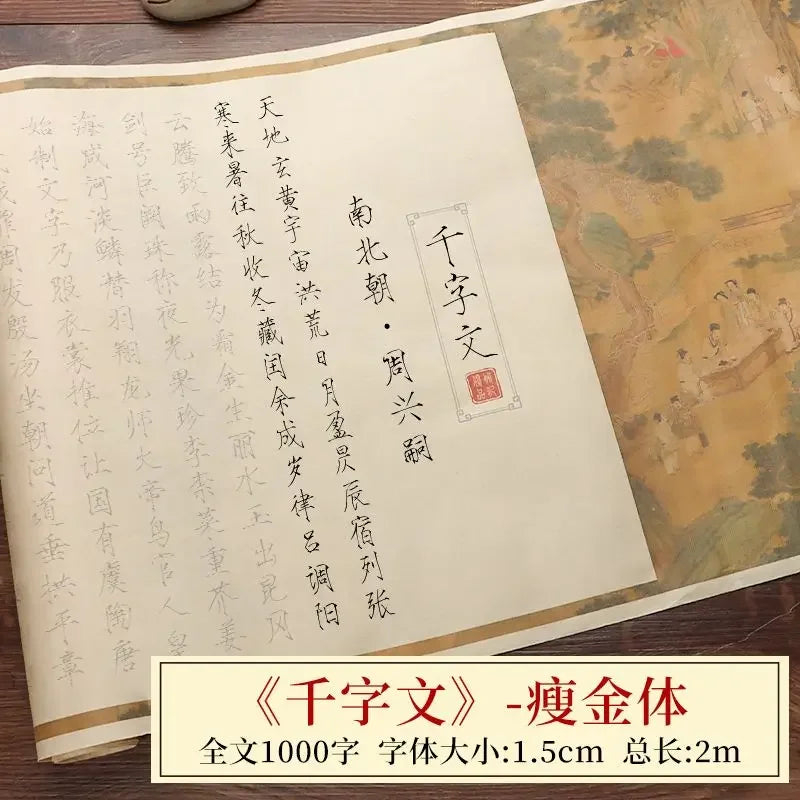 千字文
南北朝·周兴嗣
天地玄黄宇宙洪荒日月盈昃辰宿列张
寒来暑往秋收冬藏闰余成岁律吕调阳
云腾致雨露结为霜金生丽水玉出昆冈
剑号巨阙珠称夜光果珍李柰菜重芥姜
海咸河淡鳞潜羽翔龙师火帝鸟官人皇
始制文字乃服衣裳推位让国有虞陶唐
周发殷汤坐朝问道垂拱平章
《千字文》-瘦金体
全文1000字 字体大小:1.5cm 总长:2m